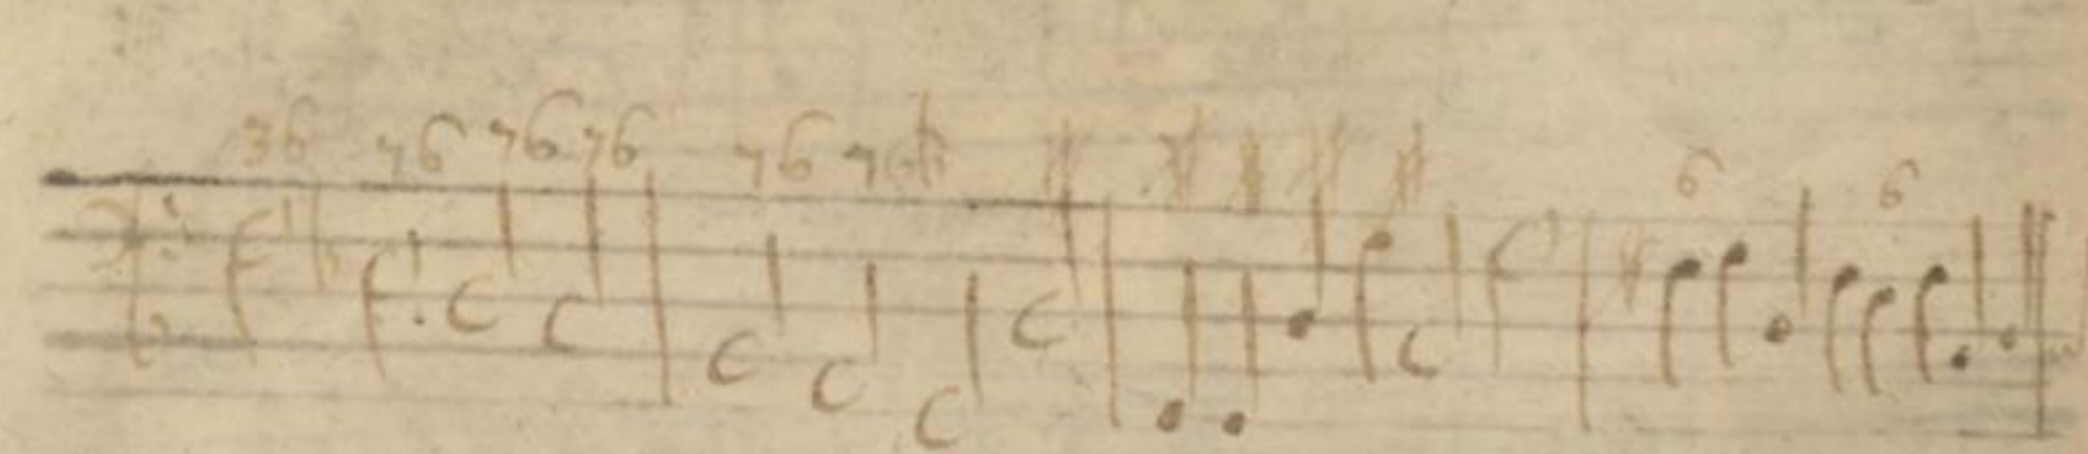 36 76 76 76 76 76 # # # # # 6 6